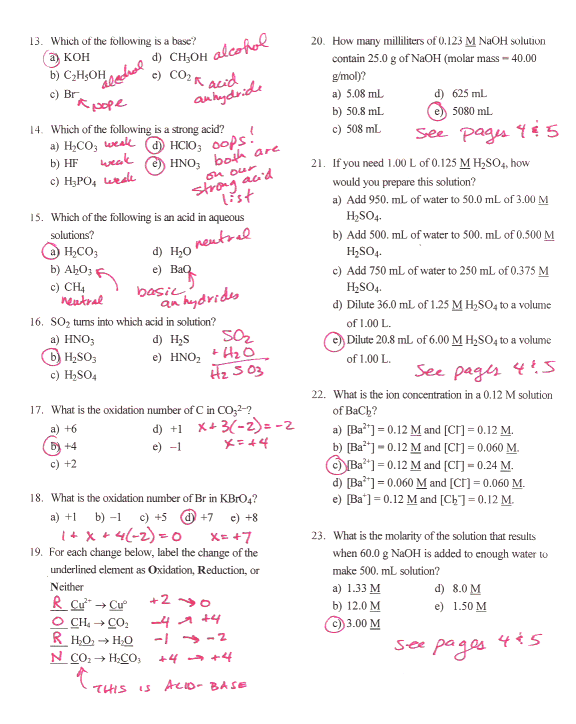 13. Which of the following is a base?
a) KOH d) CH₃OH alcohol
b) C₂H₅OH alcohol e) CO₂ acid anhydride
c) Br⁻ nope
14. Which of the following is a strong acid?
a) H₂CO₃ weak d) HClO₃ oops!
b) HF weak e) HNO₃ both are
c) H₃PO₄ weak on our
strong acid
list
15. Which of the following is an acid in aqueous
solutions?
a) H₂CO₃ d) H₂O neutral
b) Al₂O₃ e) BaO
c) CH₄ basic
neutral anhydrides
16. SO₂ turns into which acid in solution?
a) HNO₃ d) H₂S SO₂
b) H₂SO₃ e) HNO₂ + H₂O
c) H₂SO₄ H₂SO₃
17. What is the oxidation number of C in CO₃²⁻?
a) +6 d) +1 x+3(-2)=-2
b) +4 e) –1 x=+4
c) +2
18. What is the oxidation number of Br in KBrO₄?
a) +1 b) –1 c) +5 d) +7 e) +8
1 + x + 4(-2) = 0 x = +7
19. For each change below, label the change of the
underlined element as Oxidation, Reduction, or
Neither
R Cu²⁺ → Cu° +2 → 0
O CH₄ → CO₂ -4 → +4
R H₂O₂ → H₂O -1 → -2
N CO₂ → H₂CO₃ +4 → +4
THIS IS ACID-BASE
20. How many milliliters of 0.123 M NaOH solution
contain 25.0 g of NaOH (molar mass = 40.00
g/mol)?
a) 5.08 mL d) 625 mL
b) 50.8 mL e) 5080 mL
c) 508 mL see pages 4 & 5
21. If you need 1.00 L of 0.125 M H₂SO₄, how
would you prepare this solution?
a) Add 950. mL of water to 50.0 mL of 3.00 M
H₂SO₄.
b) Add 500. mL of water to 500. mL of 0.500 M
H₂SO₄.
c) Add 750 mL of water to 250 mL of 0.375 M
H₂SO₄.
d) Dilute 36.0 mL of 1.25 M H₂SO₄ to a volume
of 1.00 L.
e) Dilute 20.8 mL of 6.00 M H₂SO₄ to a volume
of 1.00 L.
see pages 4 & 5
22. What is the ion concentration in a 0.12 M solution
of BaCl₂?
a) [Ba²⁺] = 0.12 M and [Cl⁻] = 0.12 M.
b) [Ba²⁺] = 0.12 M and [Cl⁻] = 0.060 M.
c) [Ba²⁺] = 0.12 M and [Cl⁻] = 0.24 M.
d) [Ba²⁺] = 0.060 M and [Cl⁻] = 0.060 M.
e) [Ba⁺] = 0.12 M and [Cl₂⁻] = 0.12 M.
23. What is the molarity of the solution that results
when 60.0 g NaOH is added to enough water to
make 500. mL solution?
a) 1.33 M d) 8.0 M
b) 12.0 M e) 1.50 M
c) 3.00 M
see pages 4 & 5